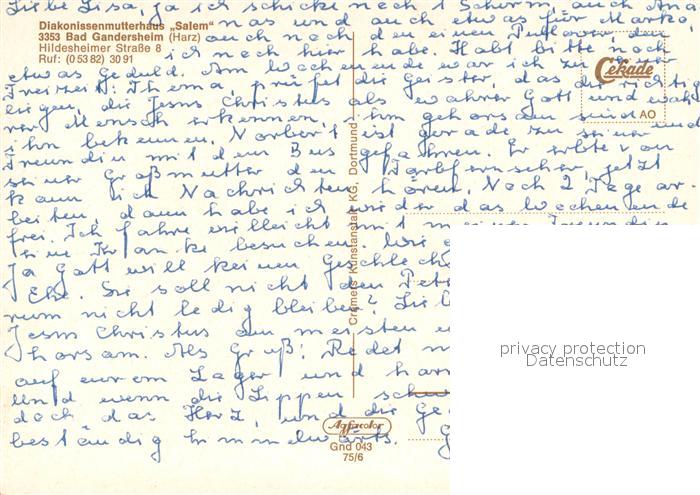 Liebe Lisa, ja ich schicke noch 1 Schurn, auch Ana
Diakonissenmutterhaus „Salem"
nas und auch etwas für Marko,
3353 Bad Gandersheim (Harz)
auch noch den einen Pullover, den
Hildesheimer Straße 8
ich noch hier habe. Habt bitte noch
Ruf: (0 53 82) 30 91
etwas Geduld. Am Wochenende war ich zu einer
Cekade
Freizeit: Thema, prüfet die Geister, das die richtig
liegen, die Jesus Christus als wahrer Gott und wah
rer Mensch erkennen, ihm gehorsam sind
AO
ihn bekennen. Norbert ist gerade zu seiner
Freundin mit dem Bus gefahren. Er erbte von
seiner Großmutter den Farbfernseher, jetzt
kann ich Nachrichten hören. Noch 2 Tage ar-
beiten, dann habe ich wieder das Wochenende
frei. Ich fahre vielleicht mit meiner Freundin
eine Kranke besuchen.
Ja Gott will keinen
Ehe. Sie soll nicht den
rum nicht ledig bleiben?
Jesus Christus am meisten
horsam. Als Gruß: Redet
auf eurem Lager und
Und wenn die Lippen
doch das Herz, und die
beständig himmelwärts.
Cramers Kunstanstalt KG, Dortmund
Agfacolor
Gnd 043
75/6
privacy protection
Datenschutz